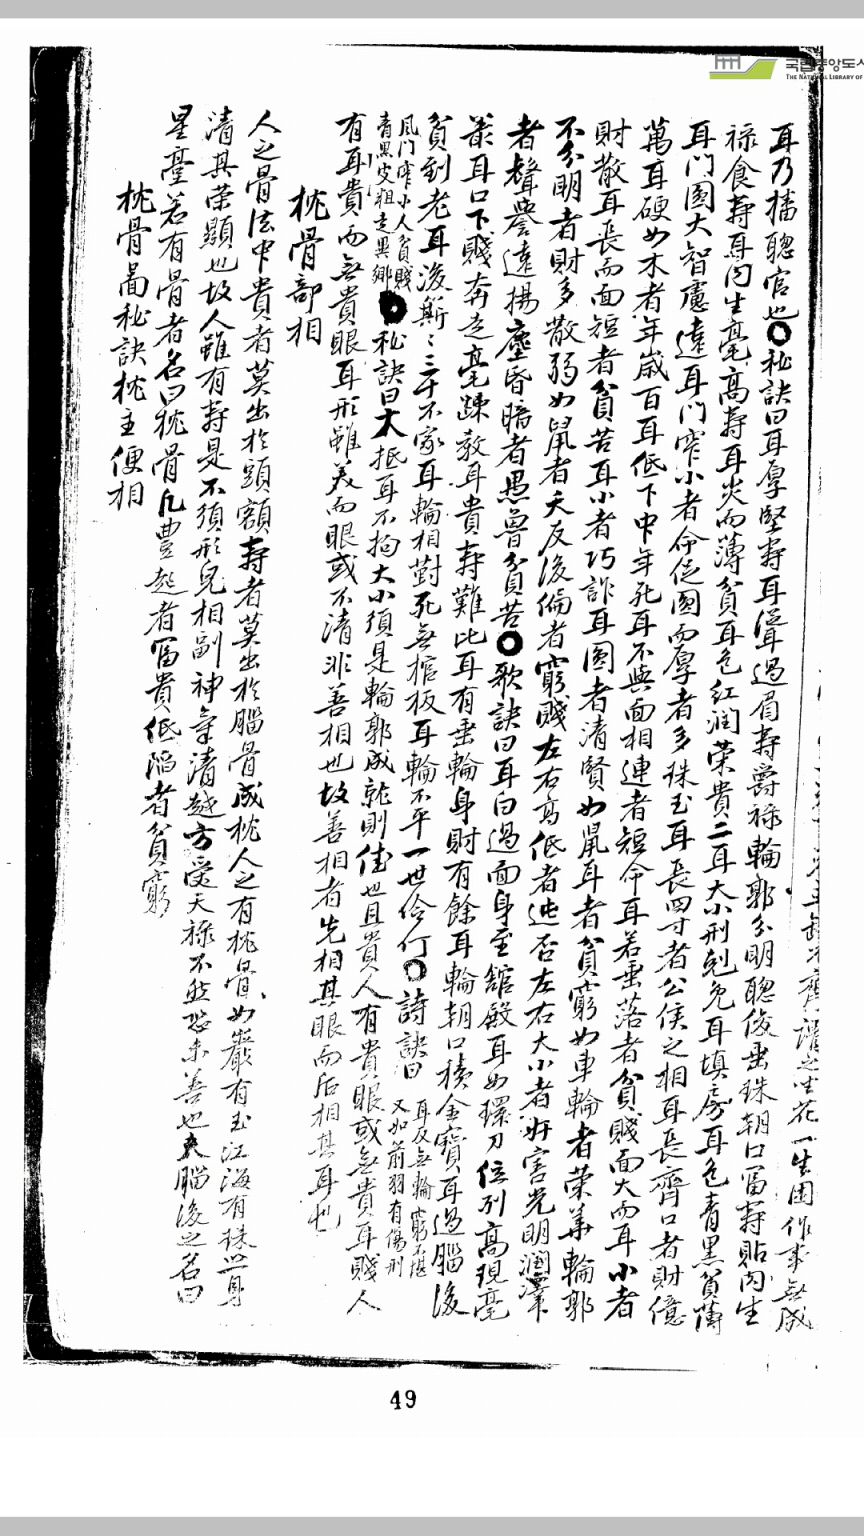 국립중앙도서
THE NATIONAL LIBRARY OF
生花一生困作事無成
耳乃播聽官也〇秘訣曰耳厚堅壽耳聳過眉壽爵祿輪郭分明聰俊垂珠朝口冨壽貼肉生
祿食壽耳內生毫高壽耳尖而薄貧耳色紅潤榮貴二耳大小刑剋兔耳填房耳色青黑貧薄
耳門圓大智慮遠耳門窄小者命促圓而厚者多珠玉耳長四寸者公侯之相耳長齊口者財億
萬耳硬如木者年歲百耳低下中年死耳不與面相連者短命耳若垂落者貧賤面大而耳小者
財散耳長而面短者貧苦耳小者巧詐耳圓者清賢如鼠耳者貧窮如車輪者榮華輪郭
不分明者財多散弱如鼠者夭反後偏者窮賤左右高低者迍否左右大小者妨害光明潤澤
者聲譽遠揚塵昏暗者愚魯貧苦〇歌訣曰耳白過面身至舘殿耳如環刀位列高現毫
耳口下賤奔走毫踈教耳貴壽難比耳有垂輪身財有餘耳輪朝口積金寶耳過腦後
貧到老耳後斯〻三千不家耳輪相對死無棺板耳輪不平一世伶仃〇詩訣曰 耳反無輪窮不堪
又如箭羽有傷刑
風門窄小人貧賤
青黑皮粗走異鄉
秘訣曰大抵耳不拘大小須是輪郭成就則佳也且貴人有貴眼或無貴耳賤人
有耳貴而無貴眼耳形雖美而眼或不清非善相也故善相者先相其眼而后相其耳也
枕骨部相
人之骨法中貴者莫出於頭額壽者莫出於腦骨成枕人之有枕骨如巖有玉江海有珠一身
清其榮顯也故人雖有壽是不須形皃相副神氣清越方受天祿不然恐未善也夫腦後之名曰
星臺若有骨者名曰枕骨凡豊起者冨貴低陷者貧窮
枕骨啚秘訣枕主便相
49